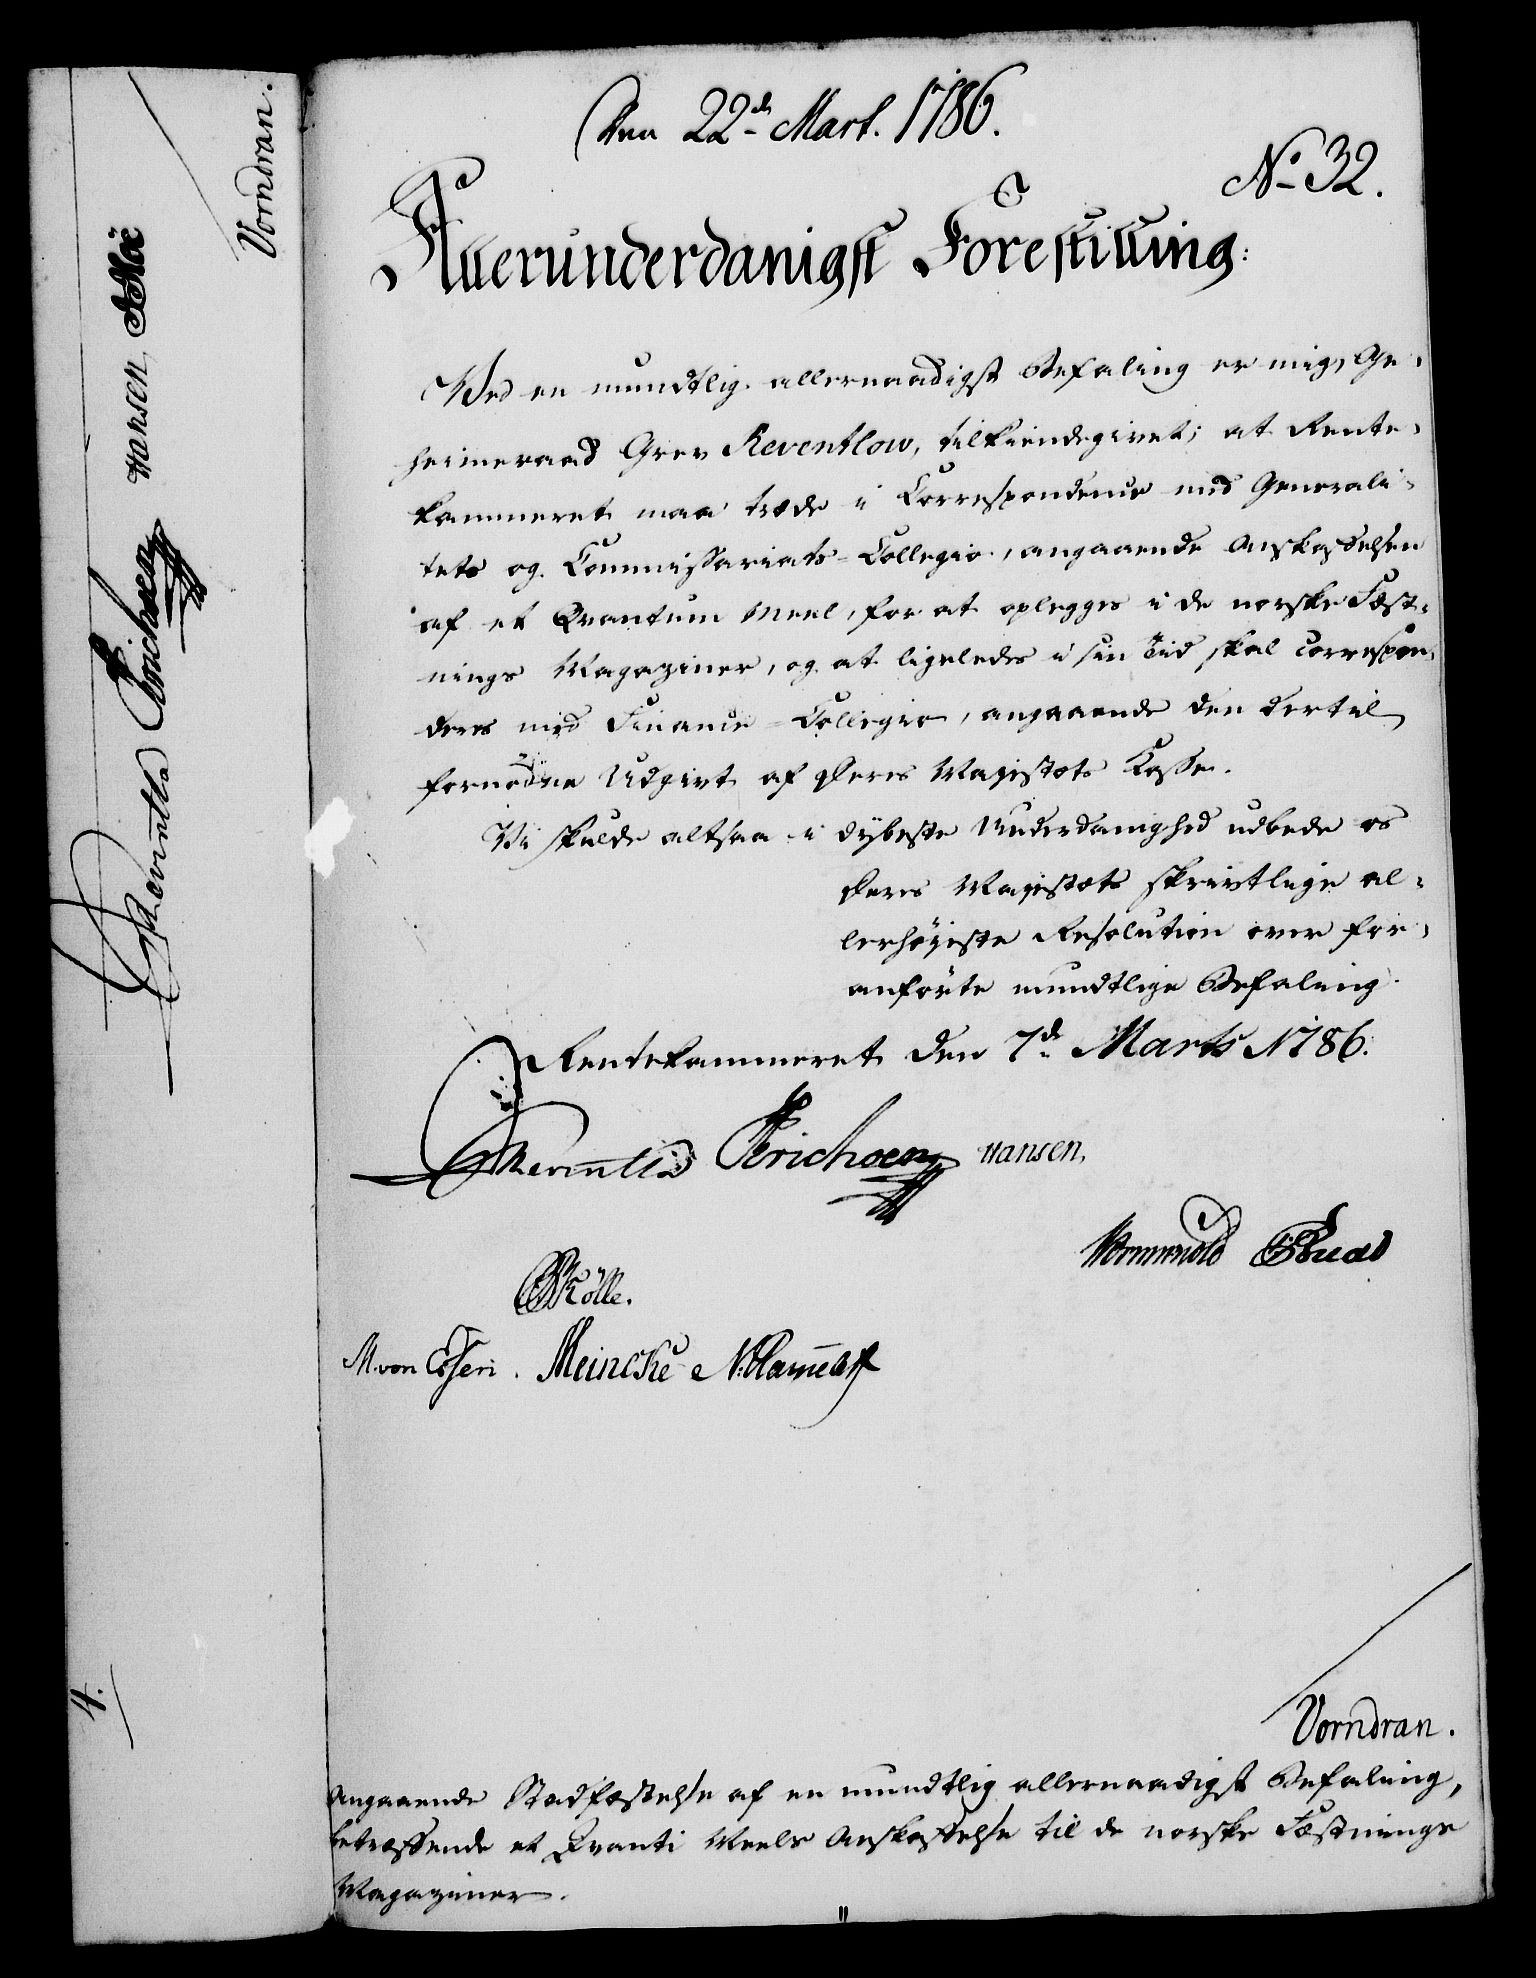 Den 22de Mart. 1786.
No 32.
Allerunderdanigst Forestilling:
Ved en mundtlig allernaadigst Befaling er mig, Ge-
heimeraad Grev Reventlow, tilkiendegivet; at Rente-
kammeret maa træde i Correspondence med Generali-
tets og Commissariats-Collegio, angaaende Anskaffelsen
af et Qvantum Meel, for at oplegges i de norske Fæst-
nings Magaziner, og at ligeledes i sin Tid skal correspon-
deres med Finance-Collegio, angaaende den dertil
fornødne Udgivt af Deres Majestæts Casse.
Vi skulde altsaa i dybeste Underdanighed udbede os
Deres Majestæts skrivtlige al-
lerhøjeste Resolution over for-
anførte mundtlige Befaling.
Rentekammeret den 7de Marts 1786.
Reventlow Erichsen Hansen,
Wormskiold
Kölle.
M. von Essen. Meincke
Vorndran.
Angaaende Stadfæstelse af en mundtlig allernaadigst Befaling,
betræffende et Qvanti Meels Anskaffelse til de norske Fæstnings
Magaziner.
Reventlow Erichsen Hansen, Moe
Vorndran.
4.